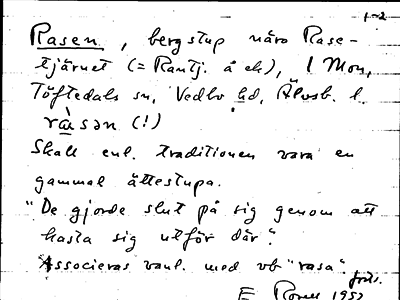 1-2
Rasen, bergstup nära Rase-
tjärnet (= Rantj. å ek), l Mon,
Töftedals sn, Vedbo hd, Älvsb. l.
ràsən (!)
Skall enl. traditionen vara en
gammal ättestupa.
"De gjorde slut på sig genom att
kasta sig utför där".
Associeras vanl. med vb "rasa".
forts.
E 1952